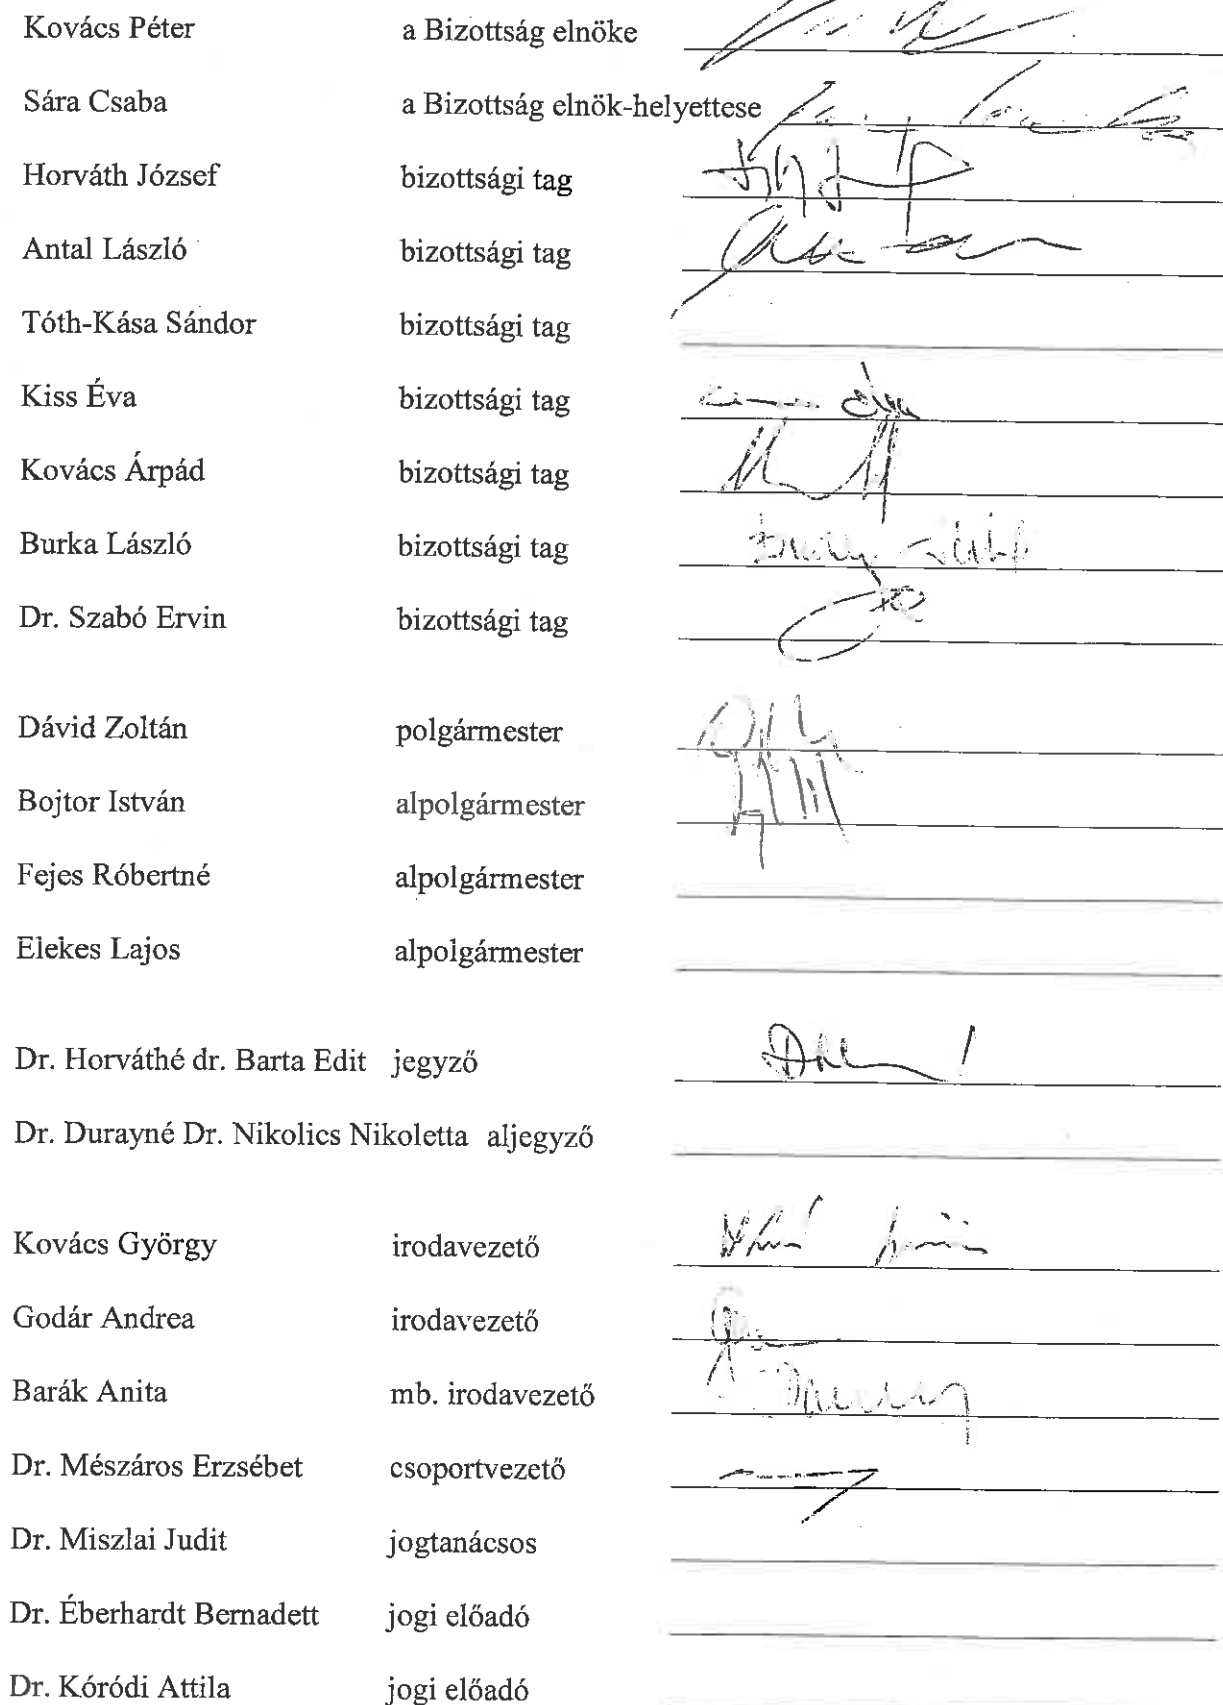 Kovács Péter a Bizottság elnöke
Sára Csaba a Bizottság elnök-helyettese
Horváth József bizottsági tag
Antal László bizottsági tag
Tóth-Kása Sándor bizottsági tag
Kiss Éva bizottsági tag
Kovács Árpád bizottsági tag
Burka László bizottsági tag
Dr. Szabó Ervin bizottsági tag
Dávid Zoltán polgármester
Bojtor István alpolgármester
Fejes Róbertné alpolgármester
Elekes Lajos alpolgármester
Dr. Horváthé dr. Barta Edit jegyző
Dr. Durayné Dr. Nikolics Nikoletta aljegyző
Kovács György irodavezető
Godár Andrea irodavezető
Barák Anita mb. irodavezető
Dr. Mészáros Erzsébet csoportvezető
Dr. Miszlai Judit jogtanácsos
Dr. Éberhardt Bernadett jogi előadó
Dr. Kóródi Attila jogi előadó